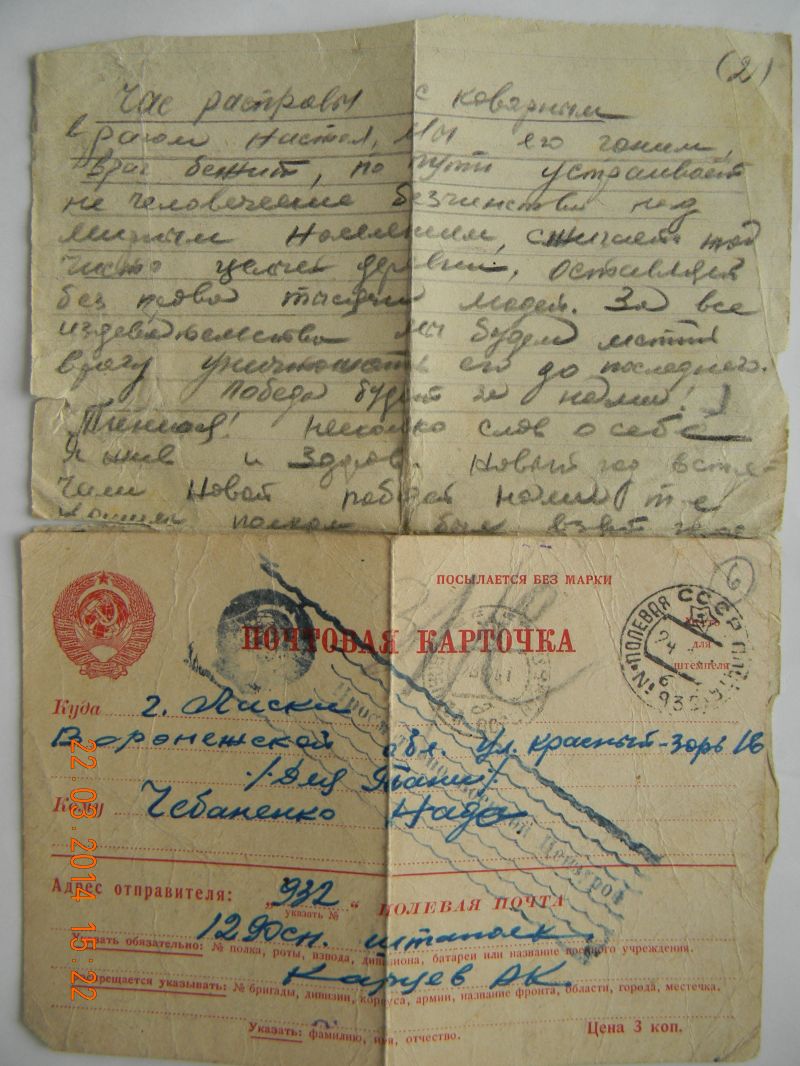 (2)
Час расправы с коварным
врагом настал, Мы его гоним,
враг бежит, по пути устраивает
не человеческие безчинства над
мирным населением, сжигает
чисто целые деревни, оставляет
без крова тысячи людей. За все
издевательства мы будем мстить
врагу уничтожать его до последнего.
Победа будет за нами!
несколько слов о себе
Я жив и здоров. Новый год встре-
чали Новой победой нами т-е
полком был взят
6
ПОСЫЛАЕТСЯ БЕЗ МАРКИ
ПОЧТОВАЯ КАРТОЧКА
ПОЛЕВАЯ СССР
24
6
N 932
Место
для
штемпеля
Просмотрено Военной Цензурой
Куда г. Лиски
Воронежской обл. ул. Красный-зорь 16
/Для Тани/
Кому Чебаненко Наде
Адрес отправителя: „932“ ПОЛЕВАЯ ПОЧТА
указать №
Указать обязательно: № полка, роты, взвода, дивизиона, батареи или название военного учреждения.
Карцев АК.
Запрещается указывать: № бригады, дивизии, корпуса, армии, название фронта, области, города, местечка.
Указать: фамилию, имя, отчество.
Цена 3 коп.
22 03 2014 15:22